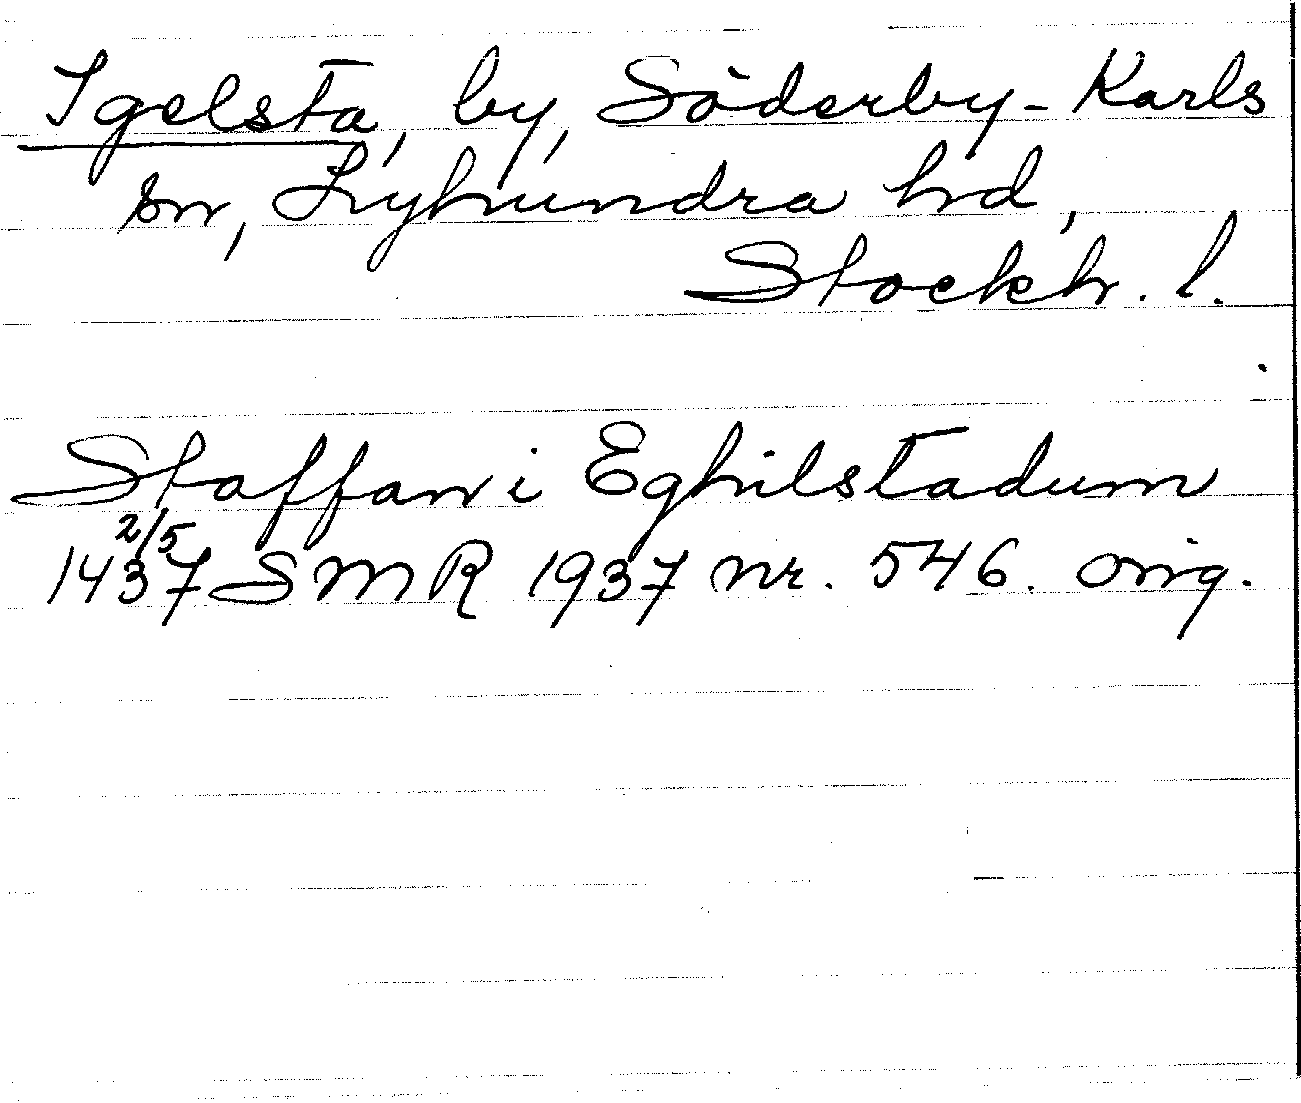 Igelsta, by, Söderby-Karls
sn, Lyhundra hd,
Stockh. l.
Staffan i Eghilstadum
2/5
1437 SMR 1937 nr. 546. orig.